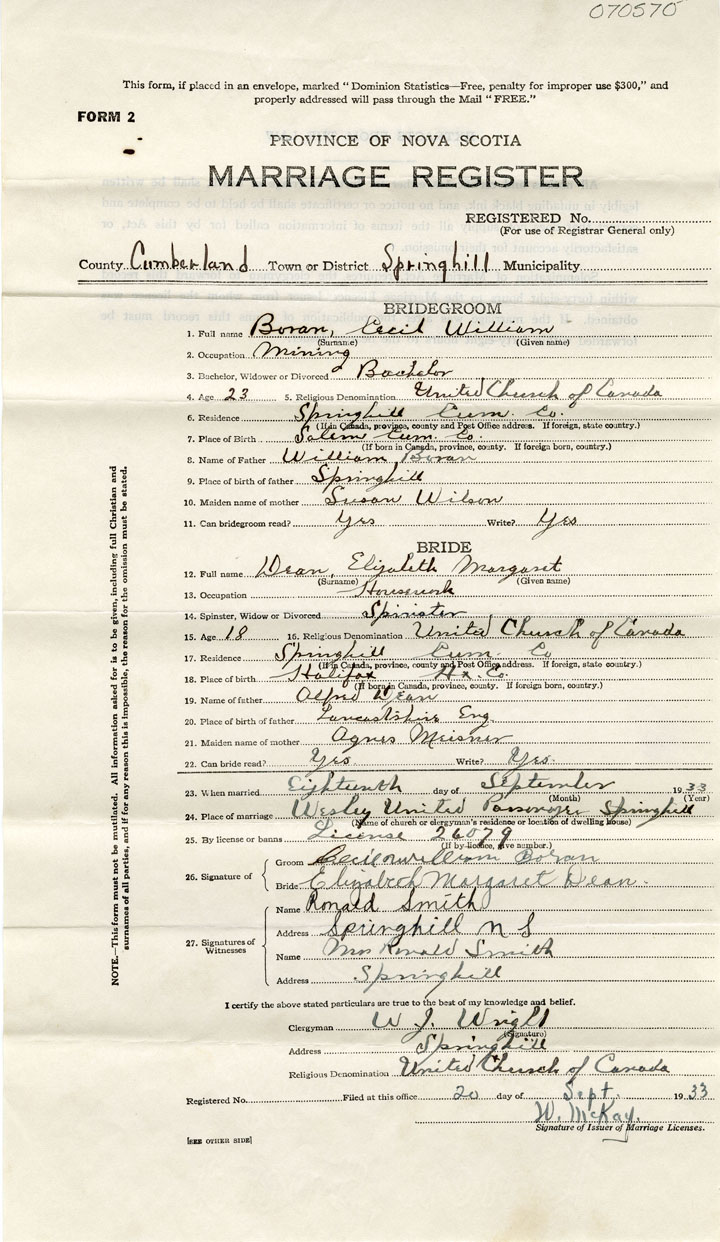 070570
This form, if placed in an envelope, marked "Dominion Statistics—Free, penalty for improper use $300," and
properly addressed will pass through the Mail "FREE."
FORM 2
PROVINCE OF NOVA SCOTIA
MARRIAGE REGISTER
REGISTERED No.
(For use of Registrar General only)
County Cumberland Town or District Springhill Municipality
BRIDEGROOM
1. Full name Boran, Cecil William
(Surname) (Given name)
2. Occupation Mining
3. Bachelor, Widower or Divorced Bachelor
4. Age 23 5. Religious Denomination United Church of Canada
6. Residence Springhill Cum. Co.
(If in Canada, province, county and Post Office address. If foreign, state country.)
7. Place of Birth Salem Cum. Co.
(If born in Canada, province, county. If foreign born, country.)
8. Name of Father William Boran
9. Place of birth of father Springhill
10. Maiden name of mother Susan Wilson
11. Can bridegroom read? Yes Write? Yes
BRIDE
12. Full name Dean, Elizabeth Margaret
(Surname) (Given name)
13. Occupation Housework
14. Spinster, Widow or Divorced Spinster
15. Age 18 16. Religious Denomination United Church of Canada
17. Residence Springhill Cum. Co
(If in Canada, province, county and Post Office address. If foreign, state country.)
18. Place of birth Halifax Hx. Co.
(If born in Canada, province, county. If foreign born, country.)
19. Name of father Alfred Dean
20. Place of birth of father Lancastshire Eng.
21. Maiden name of mother Agnes Meisner
22. Can bride read? Yes Write? Yes.
23. When married Eighteenth day of September 1933
(Month) (Year)
24. Place of marriage Wesley United Parsonage Springhill
(Name of church or clergyman's residence or location of dwelling house)
25. By license or banns License 26079
(If by licence, give number.)
26. Signature of
Groom Cecil William Boran
Bride Elizabeth Margaret Dean.
27. Signatures of Witnesses
Name Ronald Smith
Address Springhill N S
Name Mrs Ronald Smith
Address Springhill
I certify the above stated particulars are true to the best of my knowledge and belief.
Clergyman W J. Wright
(Signature)
Address Springhill
Religious Denomination United Church of Canada
Registered No. Filed at this office 20 day of Sept. 1933
W. McKay.
Signature of Issuer of Marriage Licenses.
[SEE OTHER SIDE]
NOTE.—This form must not be mutilated. All information asked for is to be given, including full Christian and
surnames of all parties, and if for any reason this is impossible, the reason for the omission must be stated.